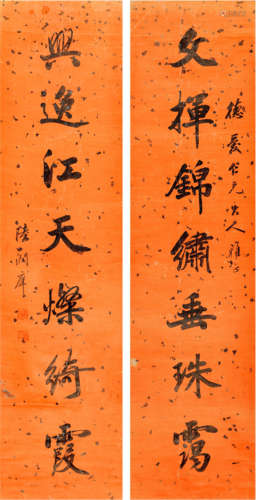 德 仁兄大人雅
文揮錦繡垂珠靄
興逸江天燦綺霞
陸潤庠